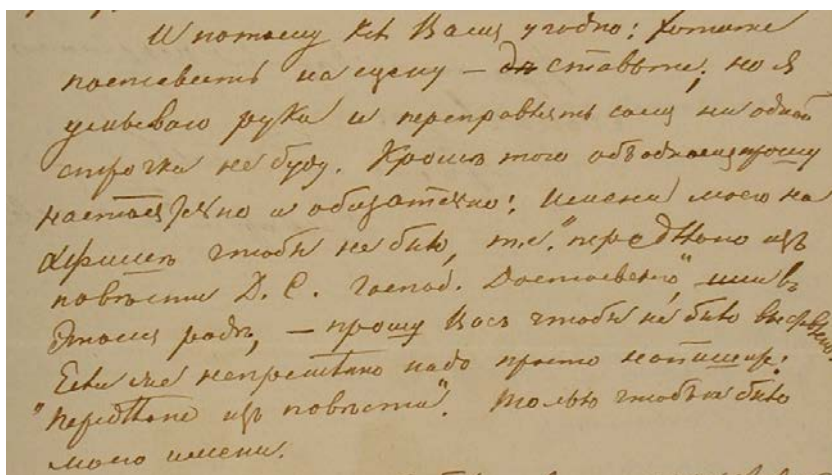 И потому какъ Вамъ угодно: хотите
поставить на сцену — ставьте; но я
умываю руки и переправлять самъ ни одной
строчки не буду. Кромѣ того объ одномъ прошу
настоятельно и обязательно: имени моего на
афишѣ чтобы не было, т.е. "передѣлано изъ
повѣсти Д. С. Господ. Достоевскаго", или въ
этомъ родѣ, — прошу Васъ чтобы не было выставлено
Если же непремѣнно надо просто напишите:
"Передѣлано изъ повѣсти". Только чтобъ не было
моего имени.